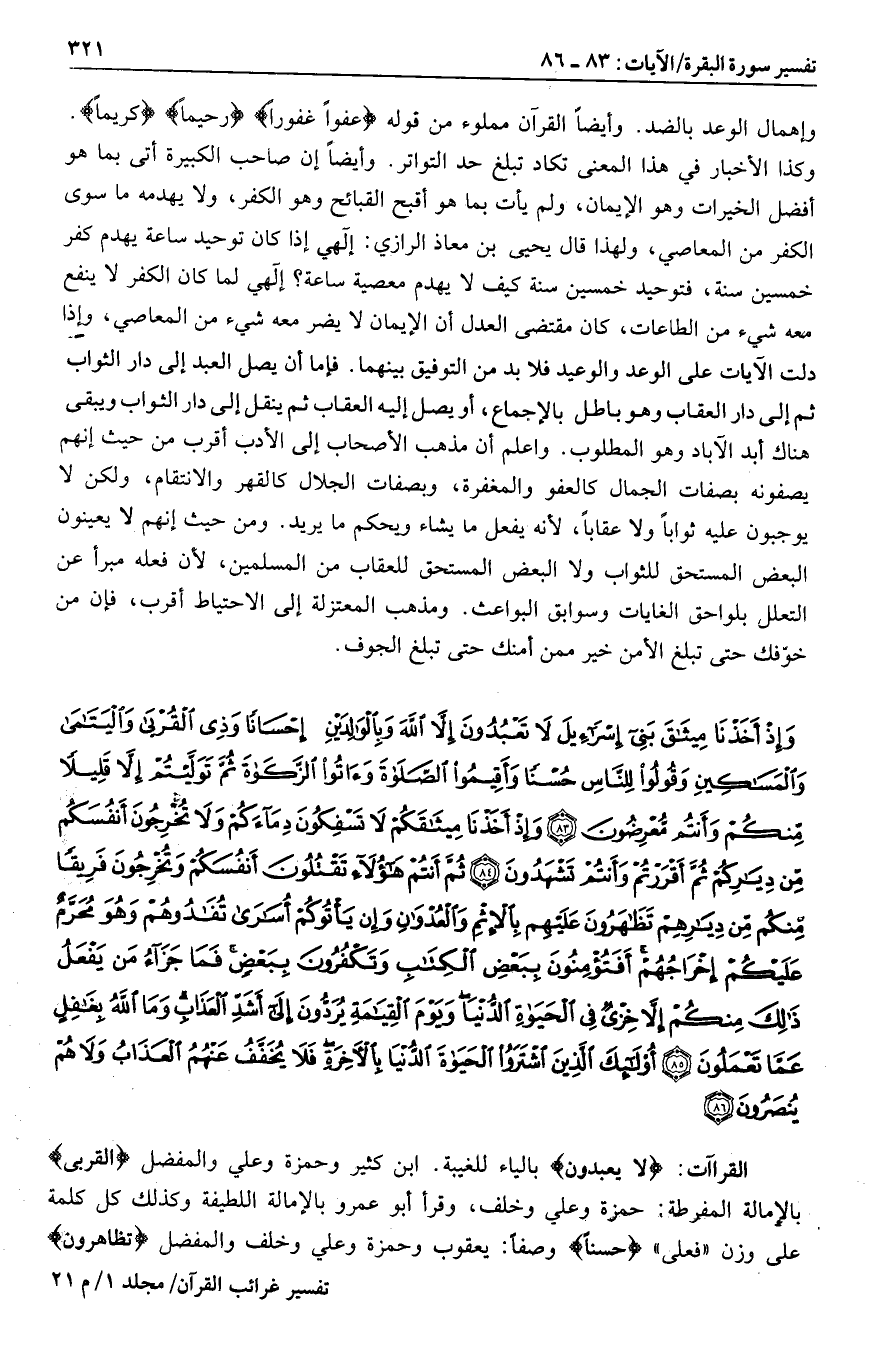 ٣٢١
تفسير سورة البقرة/الآيات: ٨٣ ـ ٨٦
وإهمال الوعد بالضد. وأيضاً القرآن مملوء من قوله ﴿عفواً غفوراً﴾ ﴿رحيماً﴾ ﴿كريماً﴾.
وكذا الأخبار في هذا المعنى تكاد تبلغ حد التواتر. وأيضاً إن صاحب الكبيرة أتى بما هو
أفضل الخيرات وهو الإيمان، ولم يأت بما هو أقبح القبائح وهو الكفر، ولا يهدمه ما سوى
الكفر من المعاصي، ولهذا قال يحيى بن معاذ الرازي: إلٓهي إذا كان توحيد ساعة يهدم كفر
خمسين سنة، فتوحيد خمسين سنة كيف لا يهدم معصية ساعة؟ إلٓهي لما كان الكفر لا ينفع
معه شيء من الطاعات، كان مقتضى العدل أن الإيمان لا يضر معه شيء من المعاصي، وإذا
دلت الآيات على الوعد والوعيد فلا بد من التوفيق بينهما. فإما أن يصل العبد إلى دار الثواب
ثم إلى دار العقاب وهو باطل بالإجماع، أو يصل إليه العقاب ثم ينقل إلى دار الثواب ويبقى
هناك أبد الآباد وهو المطلوب. واعلم أن مذهب الأصحاب إلى الأدب أقرب من حيث إنهم
يصفونه بصفات الجمال كالعفو والمغفرة، وبصفات الجلال كالقهر والانتقام، ولكن لا
يوجبون عليه ثواباً ولا عقاباً، لأنه يفعل ما يشاء ويحكم ما يريد. ومن حيث إنهم لا يعينون
البعض المستحق للثواب ولا البعض المستحق للعقاب من المسلمين، لأن فعله مبرأ عن
التعلل بلواحق الغايات وسوابق البواعث. ومذهب المعتزلة إلى الاحتياط أقرب، فإن من
خوّفك حتى تبلغ الأمن خير ممن أمنك حتى تبلغ الجوف.
وَإِذْ أَخَذْنَا مِيثَٰقَ بَنِىٓ إِسْرَٰٓءِيلَ لَا تَعْبُدُونَ إِلَّا ٱللَّهَ وَبِٱلْوَٰلِدَيْنِ إِحْسَانًا وَذِى ٱلْقُرْبَىٰ وَٱلْيَتَٰمَىٰ
وَٱلْمَسَٰكِينِ وَقُولُوا۟ لِلنَّاسِ حُسْنًا وَأَقِيمُوا۟ ٱلصَّلَوٰةَ وَءَاتُوا۟ ٱلزَّكَوٰةَ ثُمَّ تَوَلَّيْتُمْ إِلَّا قَلِيلًا
مِّنكُمْ وَأَنتُم مُّعْرِضُونَ ﴿٨٣﴾ وَإِذْ أَخَذْنَا مِيثَٰقَكُمْ لَا تَسْفِكُونَ دِمَآءَكُمْ وَلَا تُخْرِجُونَ أَنفُسَكُم
مِّن دِيَٰرِكُمْ ثُمَّ أَقْرَرْتُمْ وَأَنتُمْ تَشْهَدُونَ ﴿٨٤﴾ ثُمَّ أَنتُمْ هَٰٓؤُلَآءِ تَقْتُلُونَ أَنفُسَكُمْ وَتُخْرِجُونَ فَرِيقًا
مِّنكُم مِّن دِيَٰرِهِمْ تَظَٰهَرُونَ عَلَيْهِم بِٱلْإِثْمِ وَٱلْعُدْوَٰنِ وَإِن يَأْتُوكُمْ أُسَٰرَىٰ تُفَٰدُوهُمْ وَهُوَ مُحَرَّمٌ
عَلَيْكُمْ إِخْرَاجُهُمْ ۚ أَفَتُؤْمِنُونَ بِبَعْضِ ٱلْكِتَٰبِ وَتَكْفُرُونَ بِبَعْضٍ ۚ فَمَا جَزَآءُ مَن يَفْعَلُ
ذَٰلِكَ مِنكُمْ إِلَّا خِزْىٌ فِى ٱلْحَيَوٰةِ ٱلدُّنْيَا ۖ وَيَوْمَ ٱلْقِيَٰمَةِ يُرَدُّونَ إِلَىٰٓ أَشَدِّ ٱلْعَذَابِ ۗ وَمَا ٱللَّهُ بِغَٰفِلٍ
عَمَّا تَعْمَلُونَ ﴿٨٥﴾ أُو۟لَٰٓئِكَ ٱلَّذِينَ ٱشْتَرَوُا۟ ٱلْحَيَوٰةَ ٱلدُّنْيَا بِٱلْءَاخِرَةِ ۖ فَلَا يُخَفَّفُ عَنْهُمُ ٱلْعَذَابُ وَلَا هُمْ
يُنصَرُونَ ﴿٨٦﴾
القراآت: ﴿لا يعبدون﴾ بالياء للغيبة. ابن كثير وحمزة وعلي والمفضل ﴿القربى﴾
بالإمالة المفرطة: حمزة وعلي وخلف، وقرأ أبو عمرو بالإمالة اللطيفة وكذلك كل كلمة
على وزن «فعلى» ﴿حسناً﴾ وصفاً: يعقوب وحمزة وعلي وخلف والمفضل ﴿تظاهرون﴾
تفسير غرائب القرآن/ مجلد ١/ م ٢١